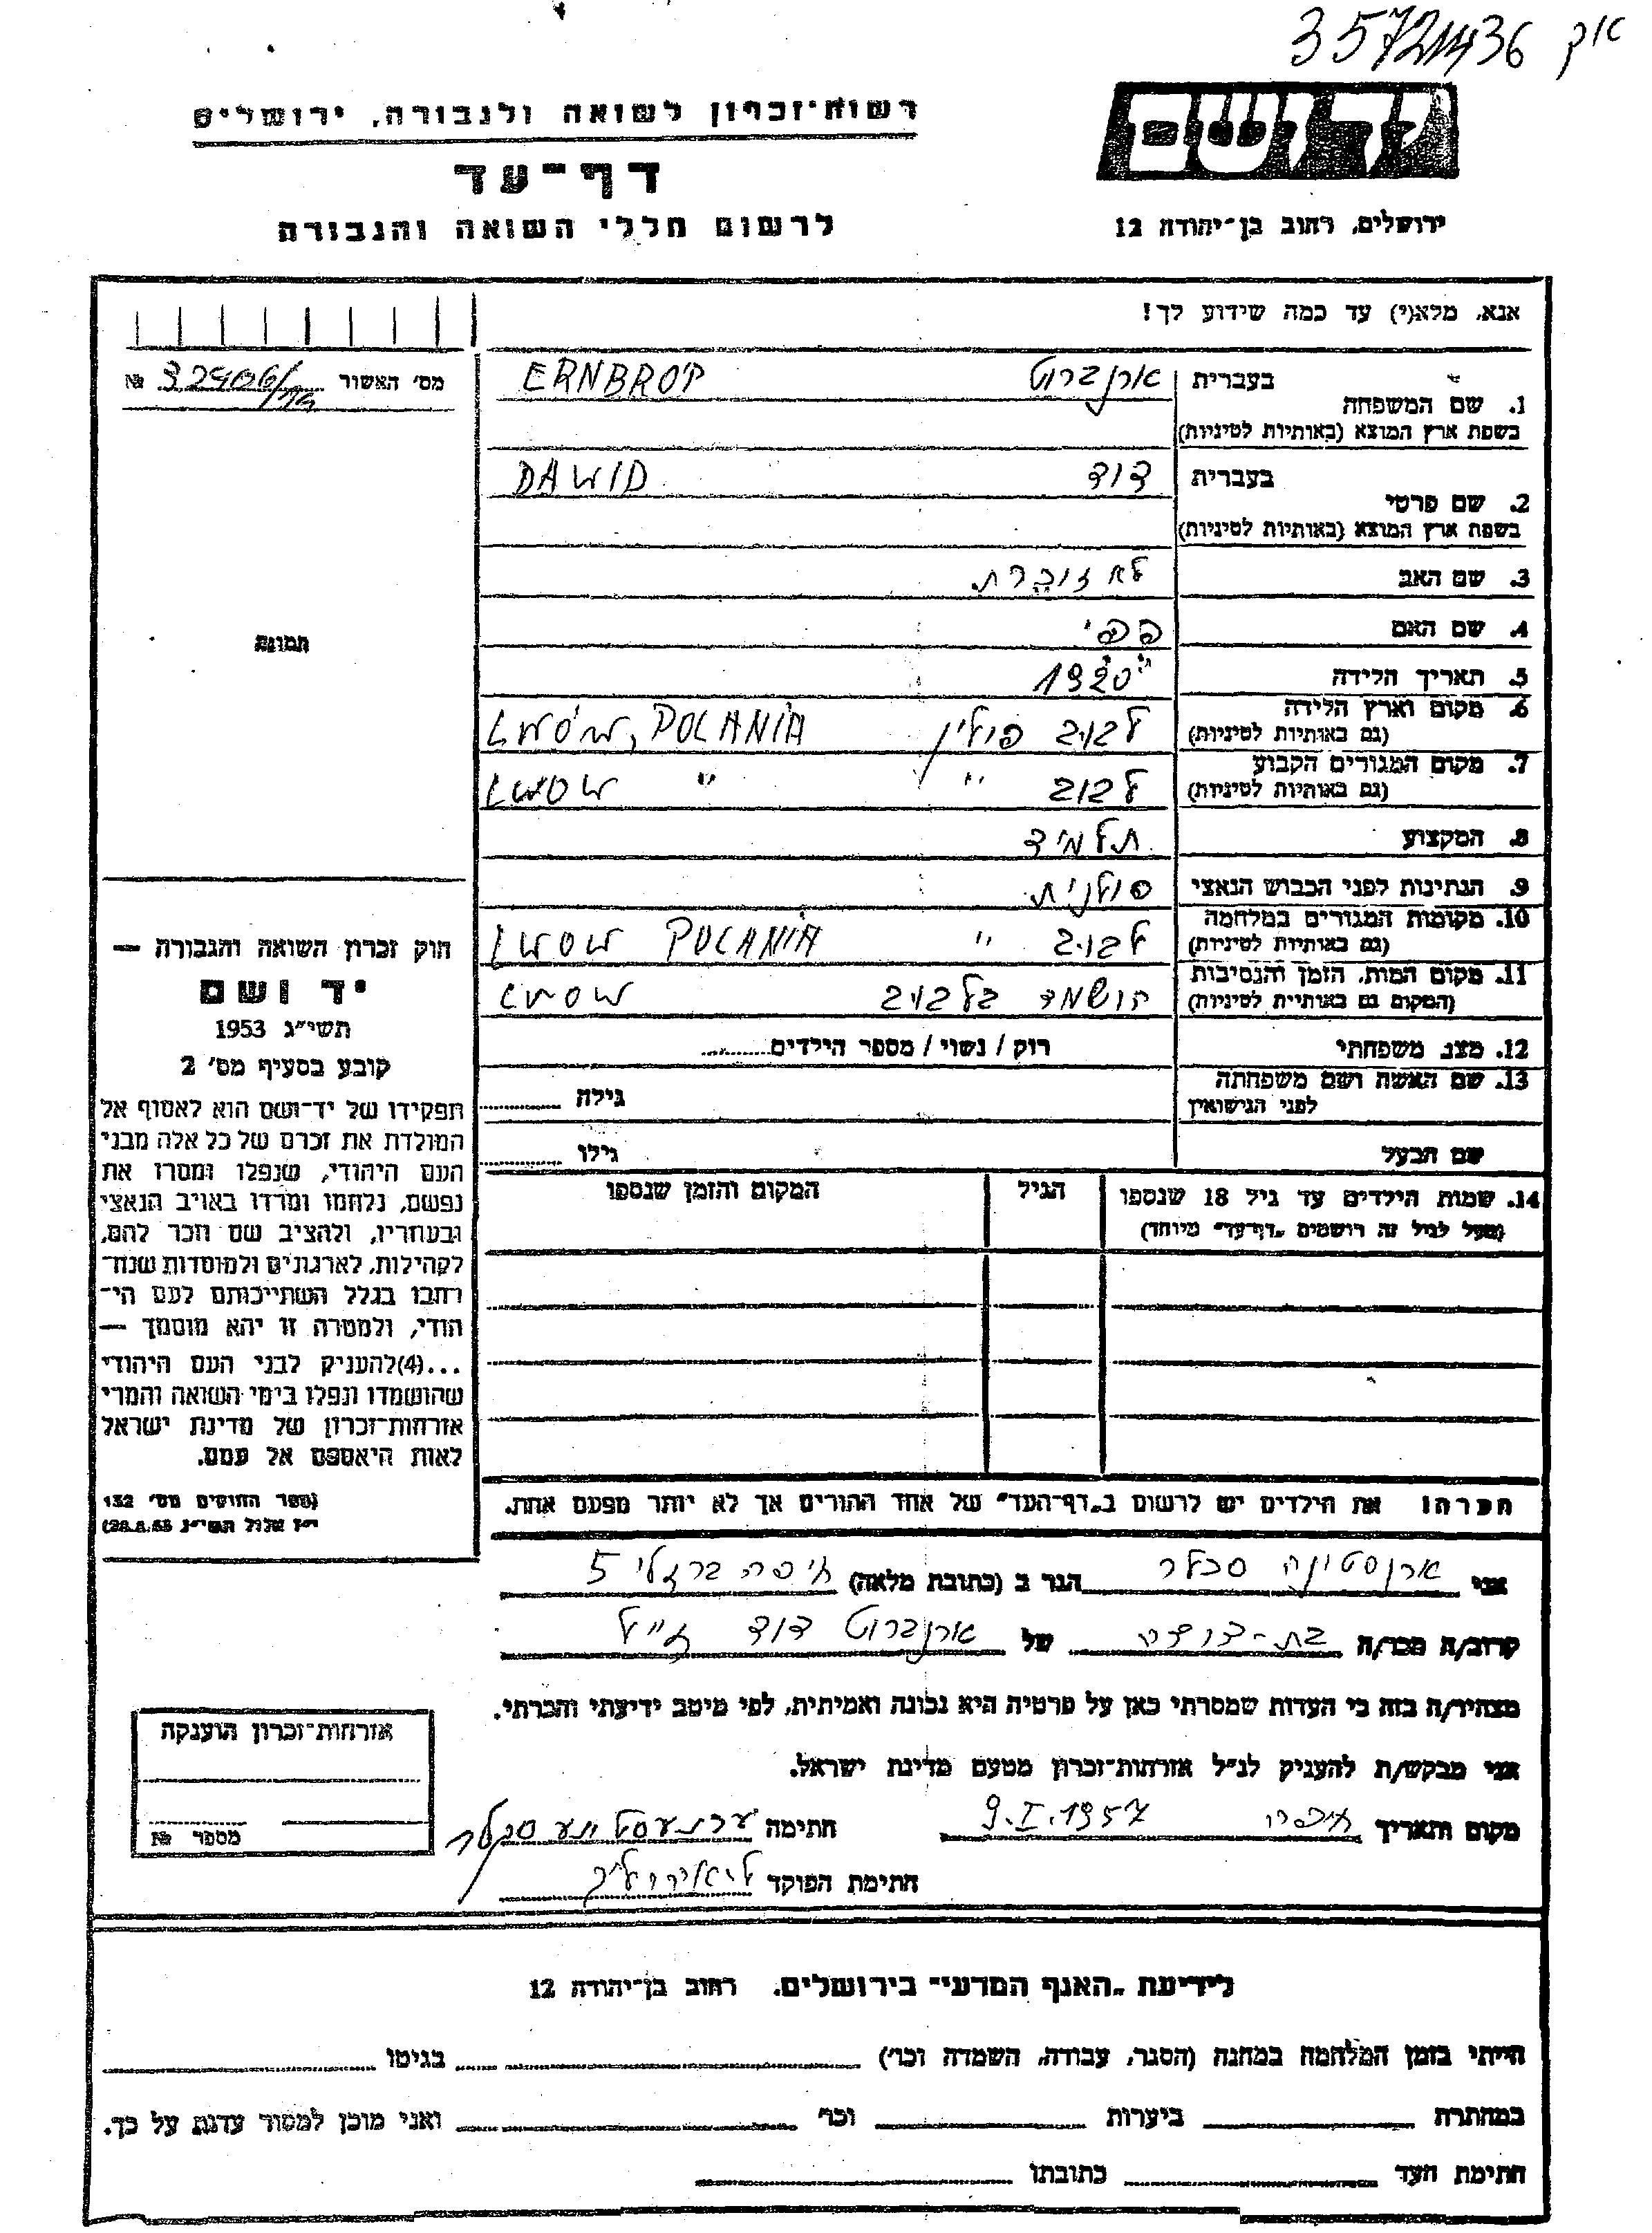 אק 35721436
יד ושם
ירושלים, רחוב בן־יהודה 12
רשות־זכרון לשואה ולגבורה, ירושלים
דף־עד
לרשום חללי השואה והגבורה
אנא, מלא(י) עד כמה שידוע לך!
מס' האשור №
1. שם המשפחה בעברית ארנברוט ERNBROT
בשפת ארץ המוצא (באותיות לטיניות)
2. שם פרטי בעברית דוד DAWID
בשפת ארץ המוצא (באותיות לטיניות)
3. שם האב לא זוכרת.
4. שם האם פפי
5. תאריך הלידה 1920
6. מקום וארץ הלידה לבוב פולין LWÓW, POLANIA
(גם באותיות לטיניות)
7. מקום המגורים הקבוע לבוב " LWOW "
(גם באותיות לטיניות)
8. המקצוע תלמיד
9. הנתינות לפני הכבוש הנאצי פולנית.
10. מקומות המגורים במלחמה לבוב " LWOW POLANIA
(גם באותיות לטיניות)
11. מקום המות, הזמן והנסיבות הושמד בלבוב LWOW
(המקום גם באותיות לטיניות)
12. מצב משפחתי רוק / נשוי / מספר הילדים
13. שם האשה ושם משפחתה
לפני הנישואין גילה
שם הבעל גילו
14. שמות הילדים עד גיל 18 שנספו הגיל המקום והזמן שנספו
(מעל לגיל זה רושמים „דף־עד" מיוחד)
הערה! את הילדים יש לרשום ב„דף־העד" של אחד ההורים אך לא יותר מפעם אחת.
תמונה
חוק זכרון השואה והגבורה —
יד ושם
תשי״ג 1953
קובע בסעיף מס' 2
תפקידו של יד־ושם הוא לאסוף אל
המולדת את זכרם של כל אלה מבני
העם היהודי, שנפלו ומסרו את
נפשם, נלחמו ומרדו באויב הנאצי
ובעוזריו, ולהציב שם וזכר להם,
לקהילות, לארגונים ולמוסדות שנח־
רבו בגלל השתייכותם לעם הי־
הודי, ולמטרה זו יהא מוסמך —
...(4)להעניק לבני העם היהודי
שהושמדו ונפלו בימי השואה והמרי
אזרחות־זכרון של מדינת ישראל
לאות היאספם אל עמם.
(ספר החוקים מס' 132
י״ז אלול תשי״ג 28.8.53)
אני ארנסטינה סקלר הגר ב (כתובת מלאה) חיפה ברזלי 5
קרוב/ה מכר/ה בת-דודה של ארנברוט דוד ז״ל
מצהיר/ה בזה כי העדות שמסרתי כאן על פרטיה היא נכונה ואמיתית, לפי מיטב ידיעתי והכרתי.
אני מבקש/ת להעניק לנ״ל אזרחות־זכרון מטעם מדינת ישראל.
מקום ותאריך חיפה 9.I.1957 חתימה
חתימת הפוקד
אזרחות־זכרון הוענקה
מספר №
לידיעת „האגף המדעי" בירושלים, רחוב בן־יהודה 12
הייתי בזמן המלחמה במחנה (הסגר, עבודה, השמדה וכו') בגיטו
במחתרת ביערות וכו' ואני מוכן למסור עדות על כך.
חתימת העד כתובתו